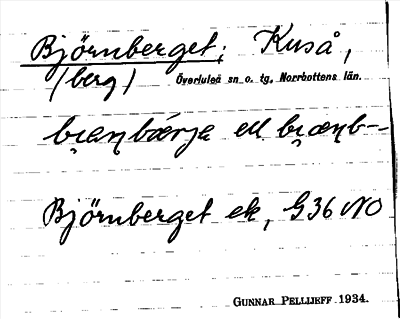 Björnberget; Kuså,
(berg) Överluleå sn o. tg, Norrbottens län.
bi̯æṇbærjə ell. bi̯æṇb--
Björnberget ek, G36 NO
GUNNAR PELLIJEFF 1934.